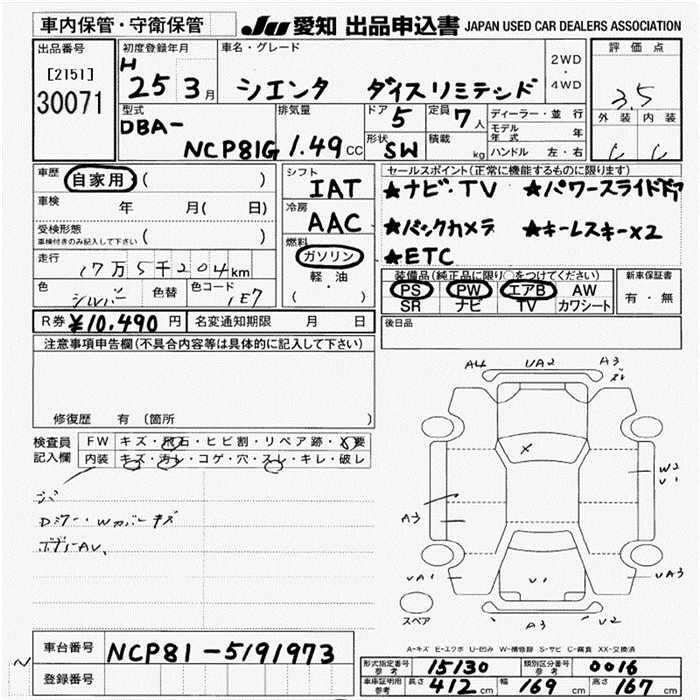 車内保管・守衛保管
JU 愛知 出品申込書 JAPAN USED CAR DEALERS ASSOCIATION
出品番号
[2151]
30071
初度登録年月
H 25 3月
車名・グレード
シエンタ ダイスリミテッド
2WD・4WD
評価点
3.5
外装 内装
C C
型式
DBA-
NCP81G
排気量
1.49 CC
ドア 5
形状 SW
定員 7 人
積載 kg
ディーラー・並行
モデル年式 年
ハンドル 左・右
車歴 自家用 ( )
車検 年 月( 日)
受検形態
車検付きのみ記入して下さい ( )
走行
17万5千204km
色 シルバー 色替 色コード 1E7
シフト
IAT
冷房
AAC
燃料
ガソリン
軽・油
( )
セールスポイント(正常に機能するものに限ります)
★ナビ・TV ★パワースライドドア
★バックカメラ ★キーレスキー×2
★ETC
装備品(純正品に限り○をつけてください)
PS PW エアB AW
SR ナビ TV カワシート
新車保証書
有・無
R券 ¥10.490 円 名変通知期限 月 日
後日品
注意事項申告欄(不具合内容等は具体的に記入して下さい)
修復歴 有 (箇所 )
検査員記入欄
FW キズ・飛石・ヒビ割・リペア跡・X要
内装 キズ・汚レ・コゲ・穴・スレ・キレ・破レ
Dミラー・Wカバーキズ
ボデーAU、
A4 UA2 A3
X
W2
U1
A3
UA1 U1 UA3
A3 U2
スペア
A-キズ E-エクボ U-凹み W-補修跡 S-サビ C-腐食 XX-交換済
車台番号 NCP81-5191973
登録番号
型式指定番号 参考 15130 類別区分番号 参考 0016
車庫証明用 参考 長さ 412 cm 幅 169 cm 高さ 167 cm